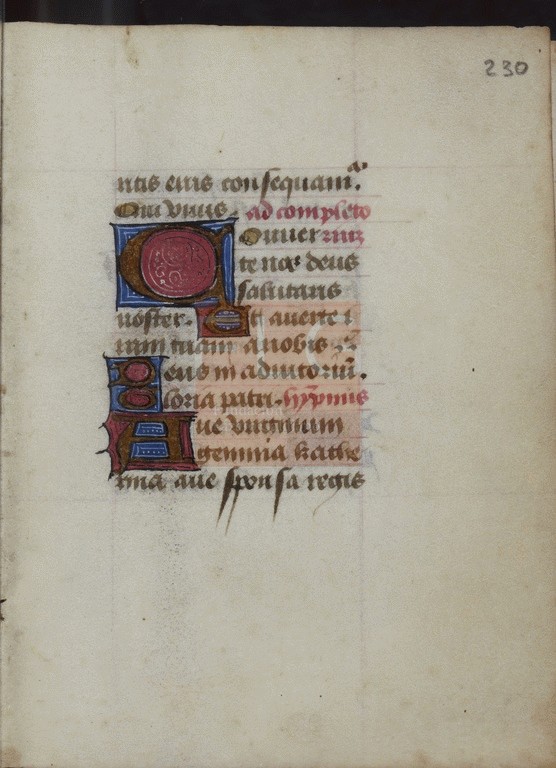 230
ntis eius consequam᷑.
Qui viuis. ad completo
Conuerte rium
te nos deus
salutaris
noster. Et auerte i
ram tuam a nobis
Deus in adiutoriu᷑.
Gloria patri. hypnus
Aue virginum
gemma kathe
rina aue sponsa regis